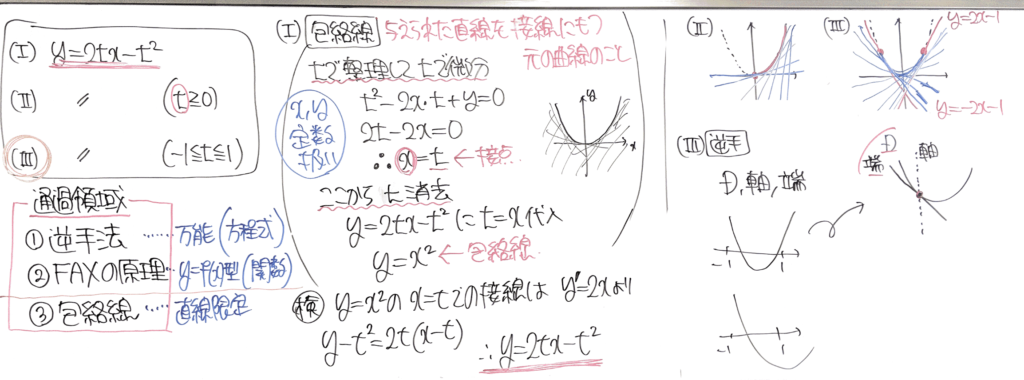 (I) y=2tx-t²
(II) 〃 (t≧0)
(III) 〃 (-1≦t≦1)
通過領域
① 逆手法 …… 万能(方程式)
② FAXの原理 … y=f(x)型(関数)
③ 包絡線 …… 直線限定
(I) 包絡線 与えられた直線を接線にもつ
元の曲線のこと
tで整理してtで微分
x,y
定数
扱い
t²-2x・t+y=0
2t-2x=0
∴x=t ←接点
ここからt消去
y=2tx-t²にt=x代入
y=x² ←包絡線
検 y=x²のx=tでの接線は y'=2xより
y-t²=2t(x-t) ∴y=2tx-t²
y
x
(II)
(III)
y=2x-1
y=-2x-1
(III) 逆手
D,軸,端
-1 1
-1 1
D
端
軸